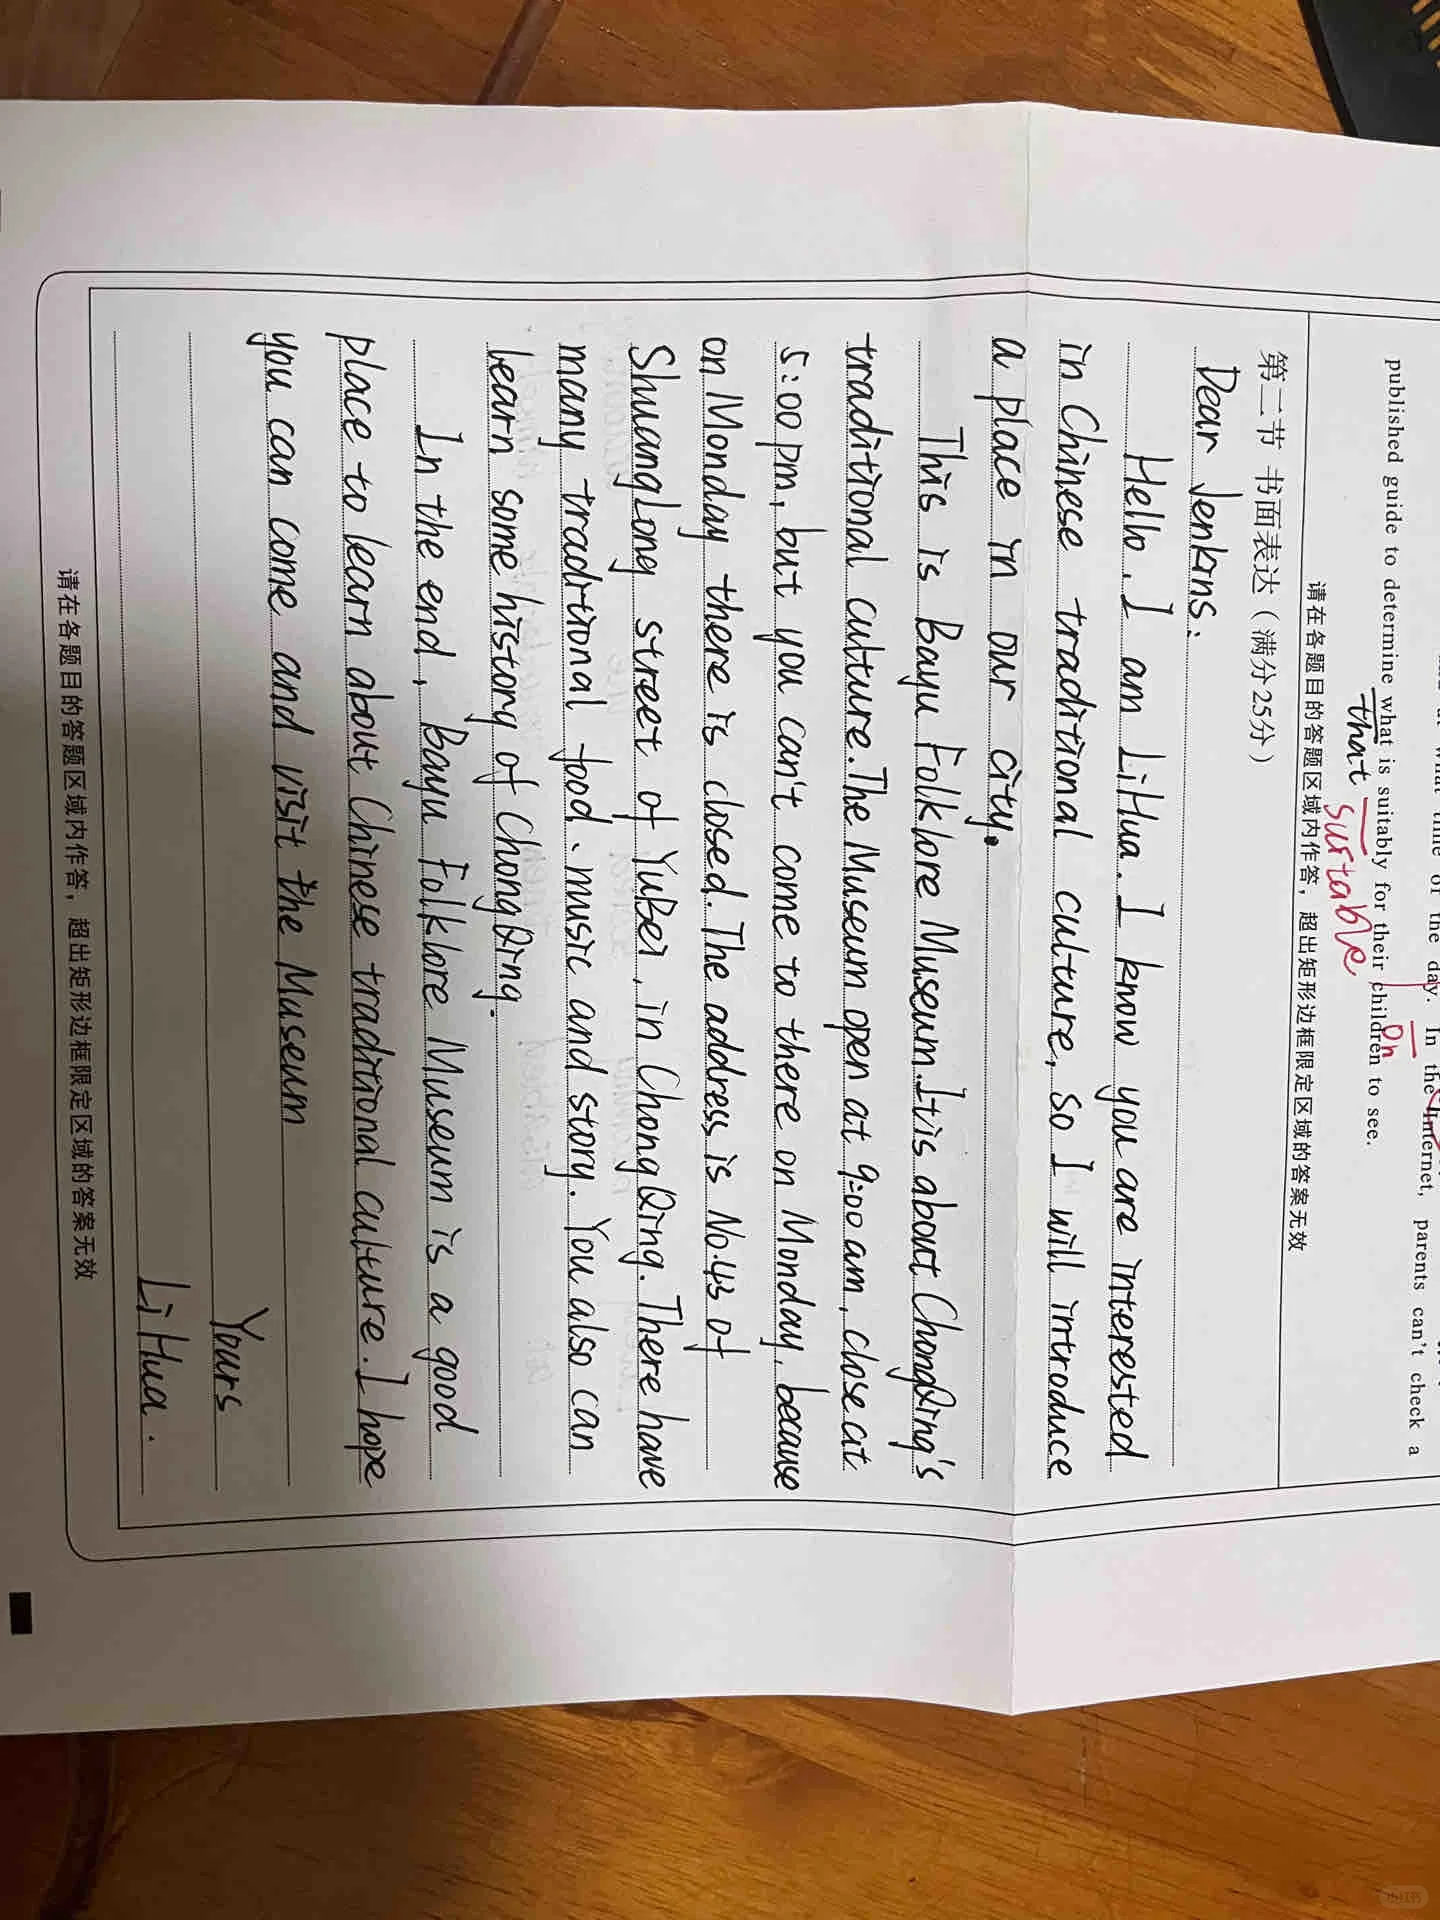 what time of the day. In the Internet, parents can't check a
On
published guide to determine what is suitably for their children to see.
that suitable
请在各题目的答题区域内作答，超出矩形边框限定区域的答案无效
第二节 书面表达（满分25分）
Dear Jenkins:
Hello, I am LiHua. I know you are interested
in Chinese traditional culture, so I will introduce
a place in our city.
This is Bayu Folklore Museum. It is about ChongQing's
traditional culture. The Museum open at 9:00 am, close at
5:00 pm, but you can't come to there on Monday, because
on Monday there is closed. The address is No.43 of
ShuangLong street of YuBei, in ChongQing. There have
many traditional food、music and story. You also can
learn some history of ChongQing.
In the end, Bayu Folklore Museum is a good
place to learn about Chinese traditional culture. I hope
you can come and visit the Museum
Yours
LiHua.
请在各题目的答题区域内作答，超出矩形边框限定区域的答案无效
小红书